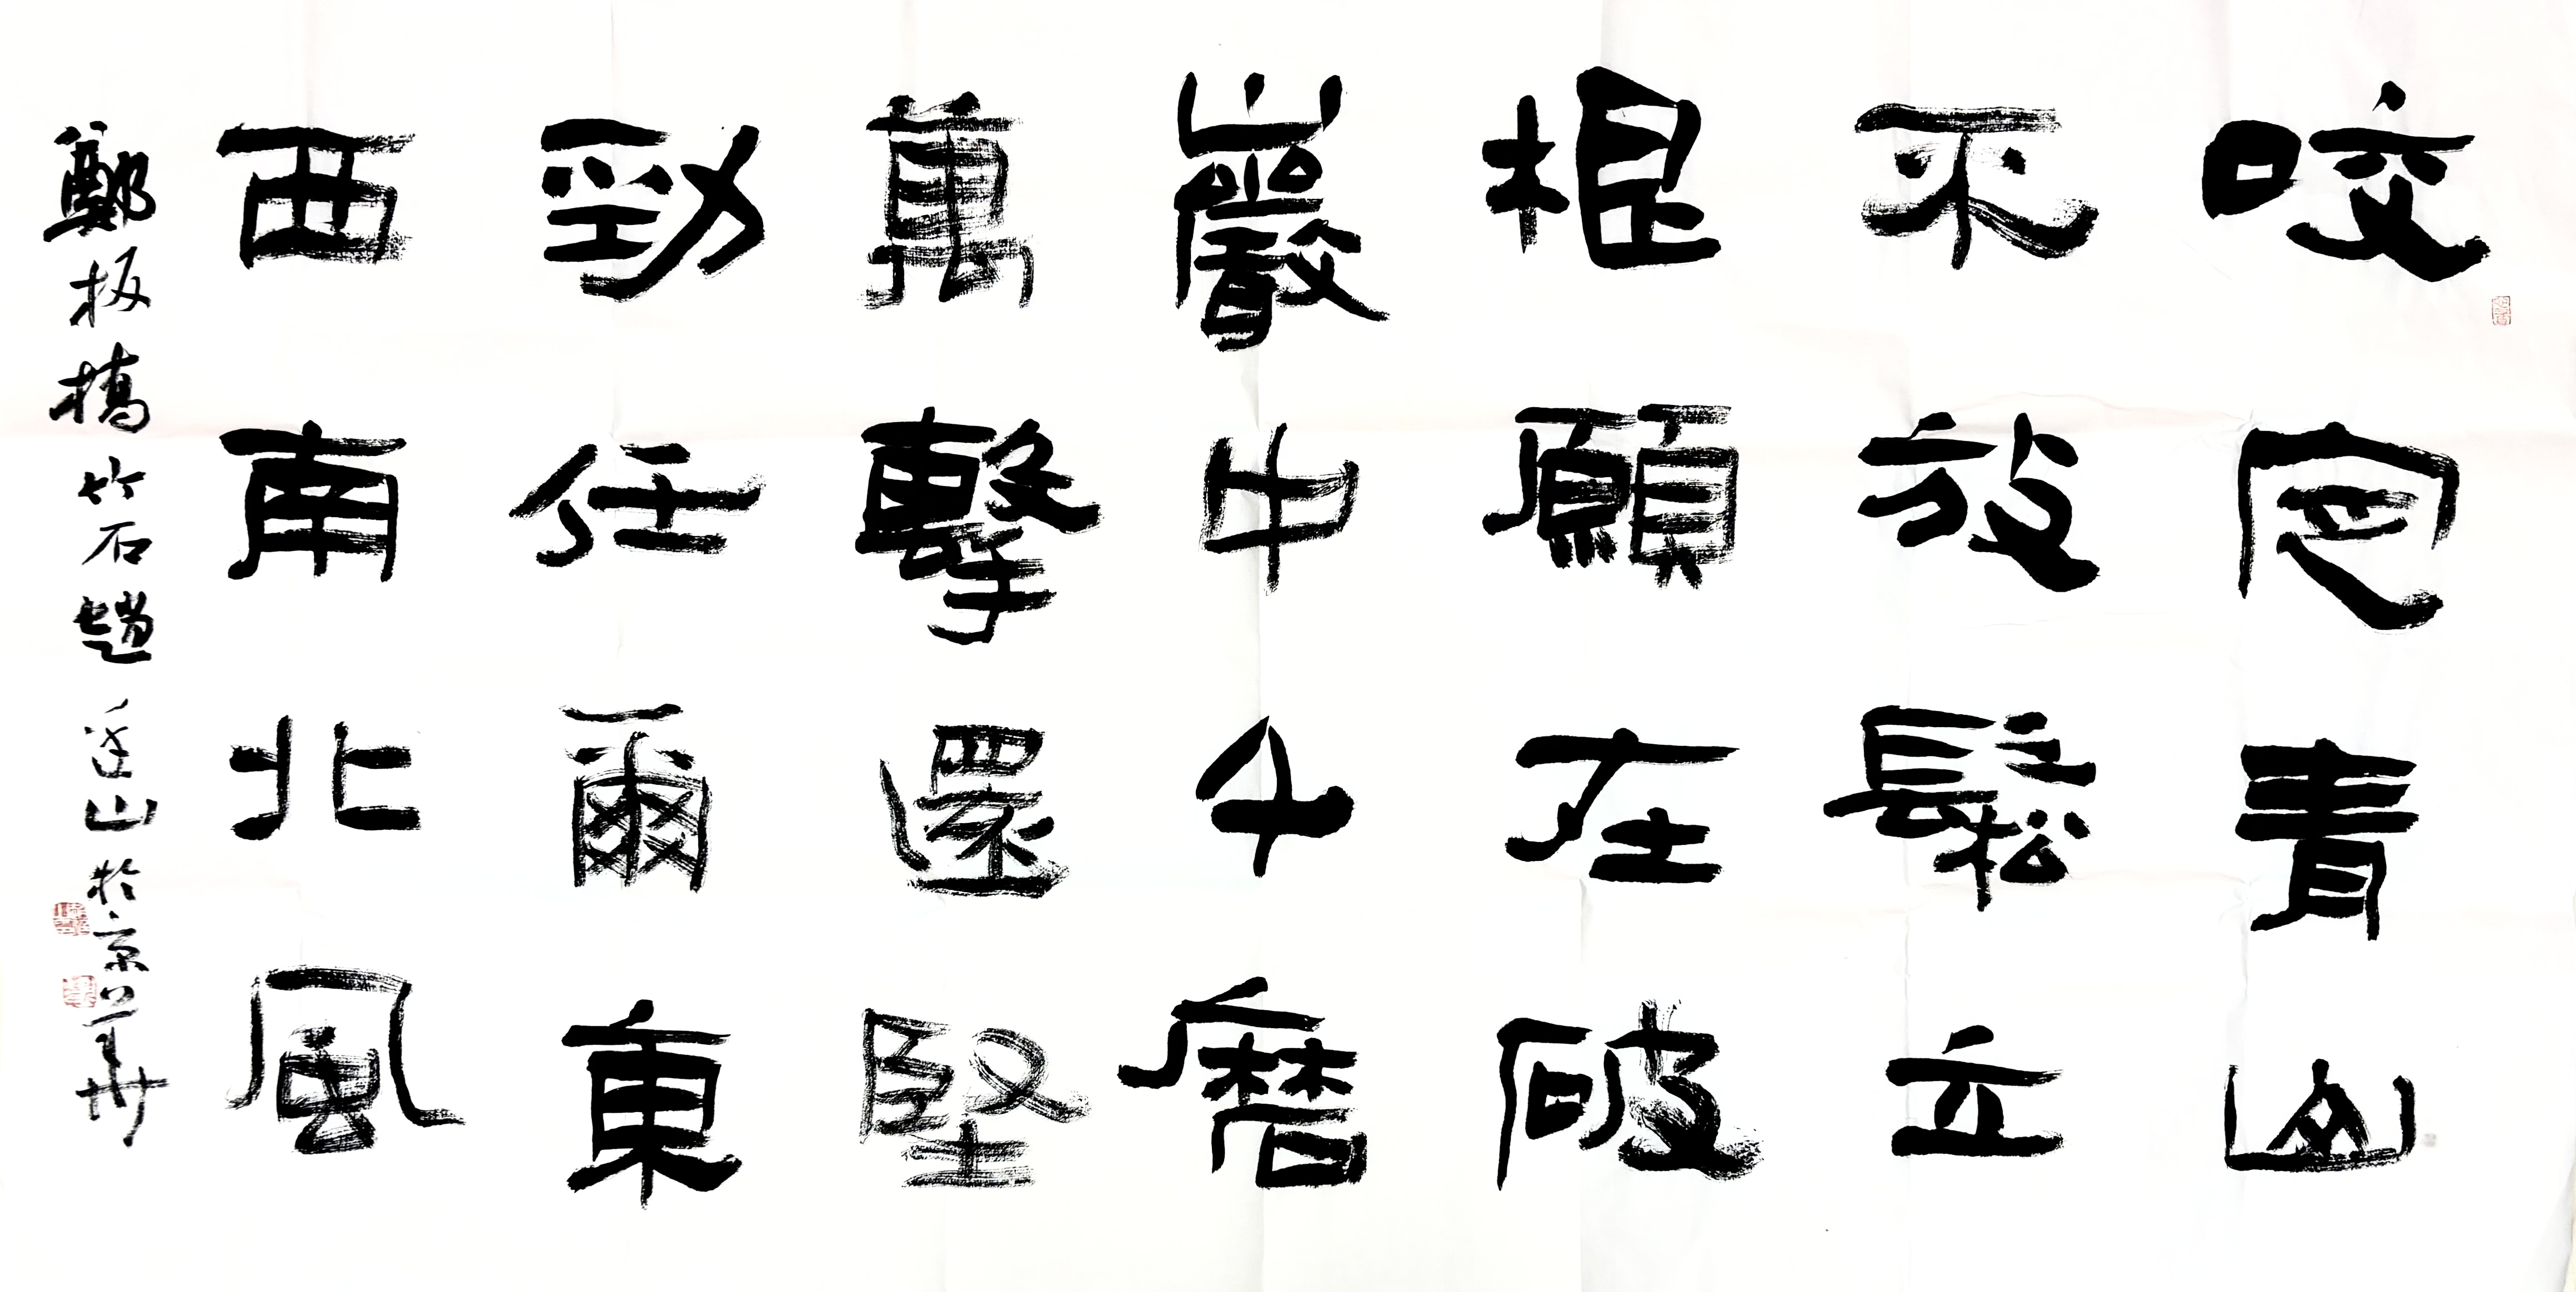 咬定青山
不放鬆立
根願在破
巖中千磨
萬擊還堅
勁任爾東
西南北風
鄭板橋竹石趙山於京華